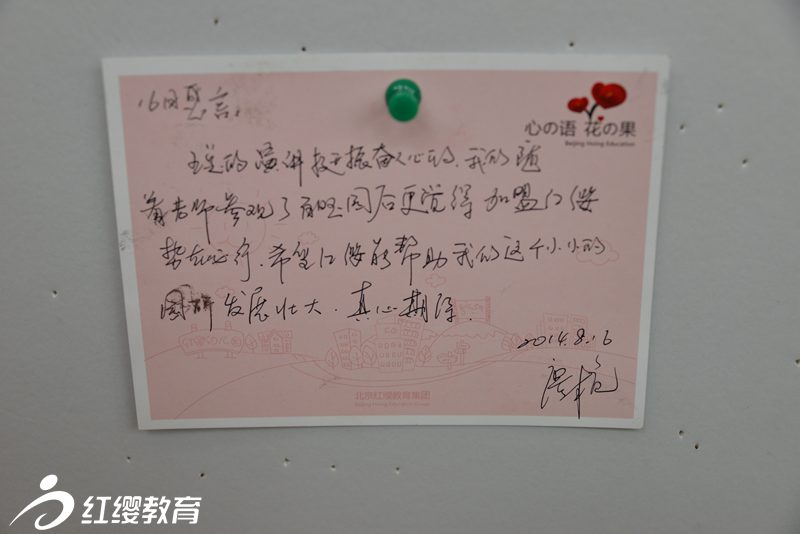 心の语 花の果
Beijing Hoing Education
16日 言：
王总的演讲挺振奋人心的，我们随
着老师参观了 园后更觉得 加盟红缨
势在必行，希望红缨能帮助我们这个小小的
园所发展壮大，真心期待。
2014.8.16
北京红缨教育集团
Beijing Hoing Education Group
红缨教育